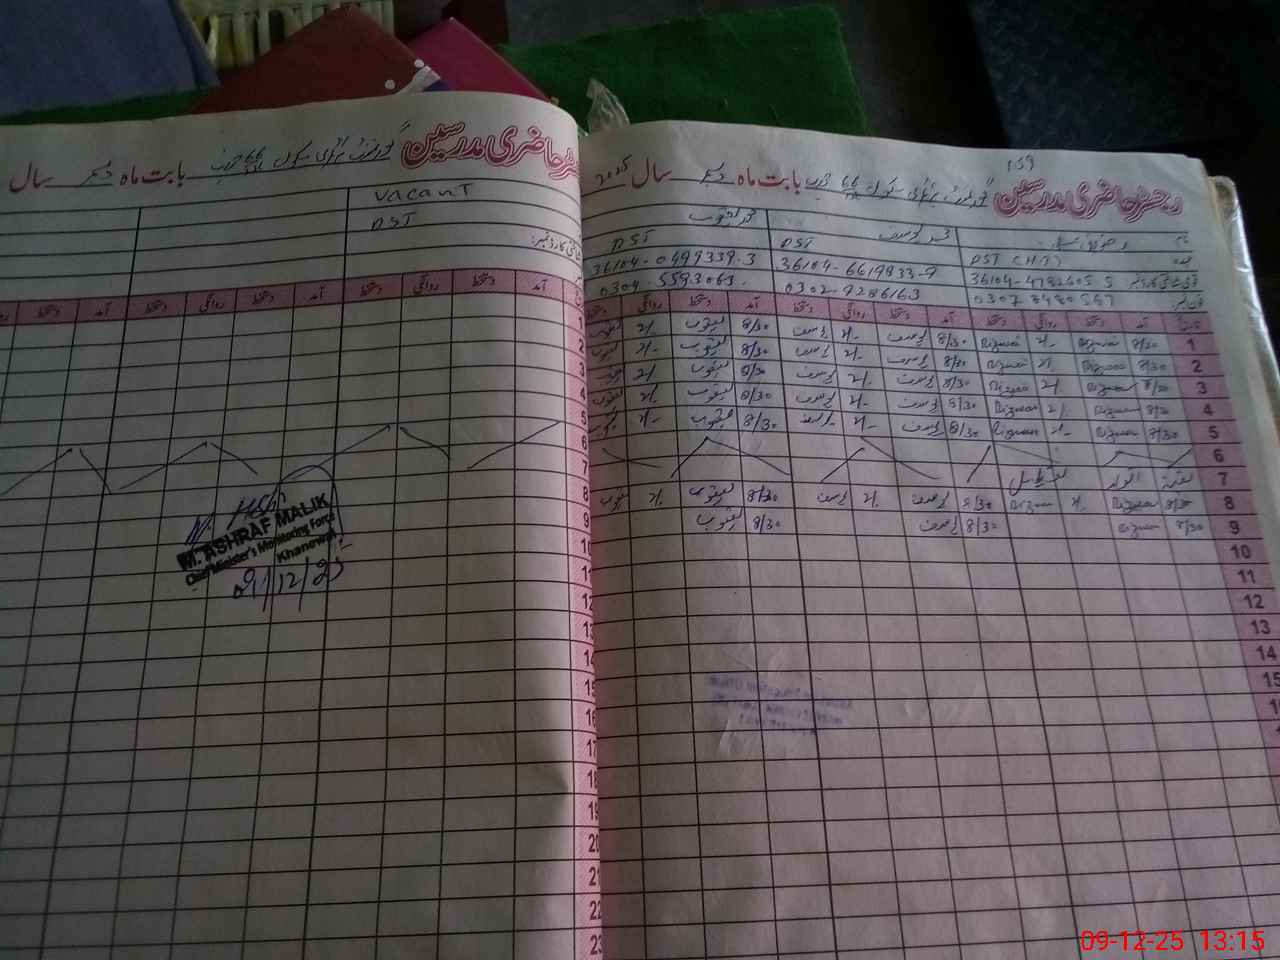 159
رجسٹر حاضری مدرسین گورنمنٹ پرائمری سکول 66 بابت ماہ دسمبر سال 2025
نام
محمد یوسف
محمد یعقوب
عہدہ PST (H.T)
PST
PST
قومی شناختی کارڈ نمبر 36104-4782605-5
36104-6619833-9
36104-0499339-3
فون نمبر 0307 8480567
0302-9286163
0304-5593063
تاریخ آمد دستخط روانگی دستخط آمد دستخط روانگی دستخط آمد دستخط روانگی دستخط
1 8/30 Rizwan 2/- Rizwan 8/30 یوسف 2/- یوسف 8/30 یعقوب 2/- یعقوب
2 8/30 Rizwan 2/- Rizwan 8/30 یوسف 2/- یوسف 8/30 یعقوب 2/- یعقوب
3 8/30 Rizwan 2/- Rizwan 8/30 یوسف 2/- یوسف 8/30 یعقوب 2/- یعقوب
4 8/30 Rizwan 2/- Rizwan 8/30 یوسف 2/- یوسف 8/30 یعقوب 2/- یعقوب
5 8/30 Rizwan 2/- Rizwan 8/30 یوسف 2/- یوسف 8/30 یعقوب 2/- یعقوب
6
7 ہفتہ اتوار تعطیل
8 8/30 Rizwan 2/- Rizwan 8/30 یوسف 2/- یوسف 8/30 یعقوب 2/- یعقوب
9 8/30 Rizwan 8/30 یوسف 8/30 یعقوب
10
11
12
13
14
15
رجسٹر حاضری مدرسین گورنمنٹ پرائمری سکول 66 بابت ماہ دسمبر سال
Vacant
PST
شناختی کارڈ نمبر
آمد دستخط روانگی دستخط آمد دستخط روانگی دستخط
1
2
3
4
5
6
7
8
9
10
11
12
13
14
15
16
17
18
19
20
21
22
23
M. ASHRAF MALIK
Chief Minister's Monitoring Force
Khanewal
9/12/25
09-12-25 13:15